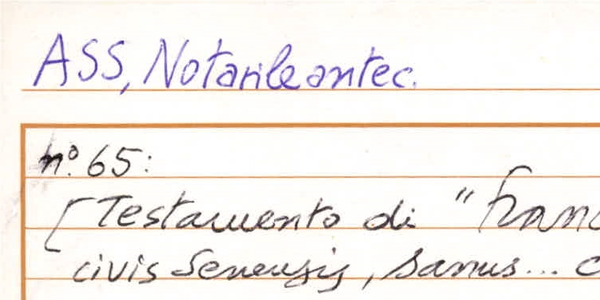 ASS, Notarile antec.
n° 65:
[Testamento di "
civis Senensis, sanus...